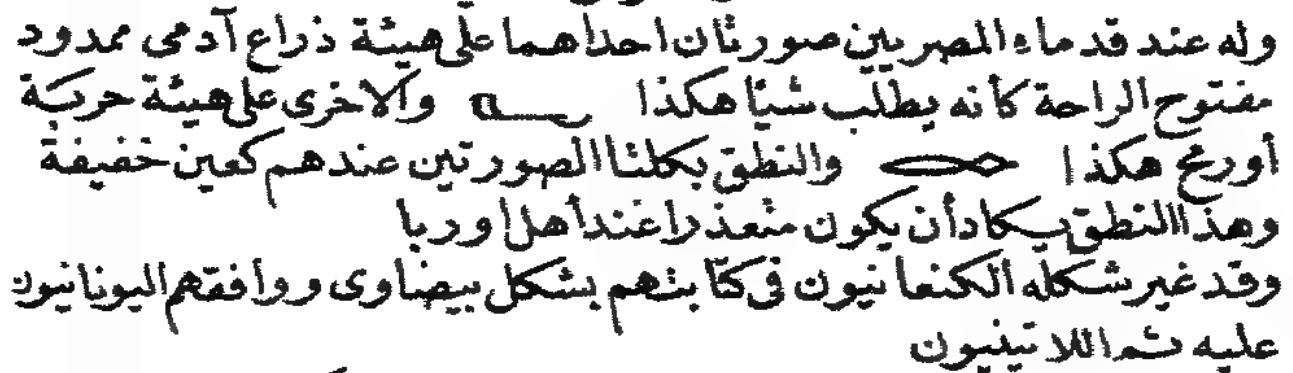 وله عند قدماء المصريين صورتان احداهما على هيئة ذراع آدمى ممدود
مفتوح الراحة كأنه يطلب شيئا هكذا والاخرى على هيئة حربة
أو رمح هكذا والنطق بكلتا الصورتين عندهم كعين خفيفة
وهذا النطق يكاد أن يكون متعذرا عند أهل اوربا
وقد غير شكله الكنعانيون فى كتابتهم بشكل بيضاوى ووافقهم اليونانيون
عليه ثم اللاتينيون